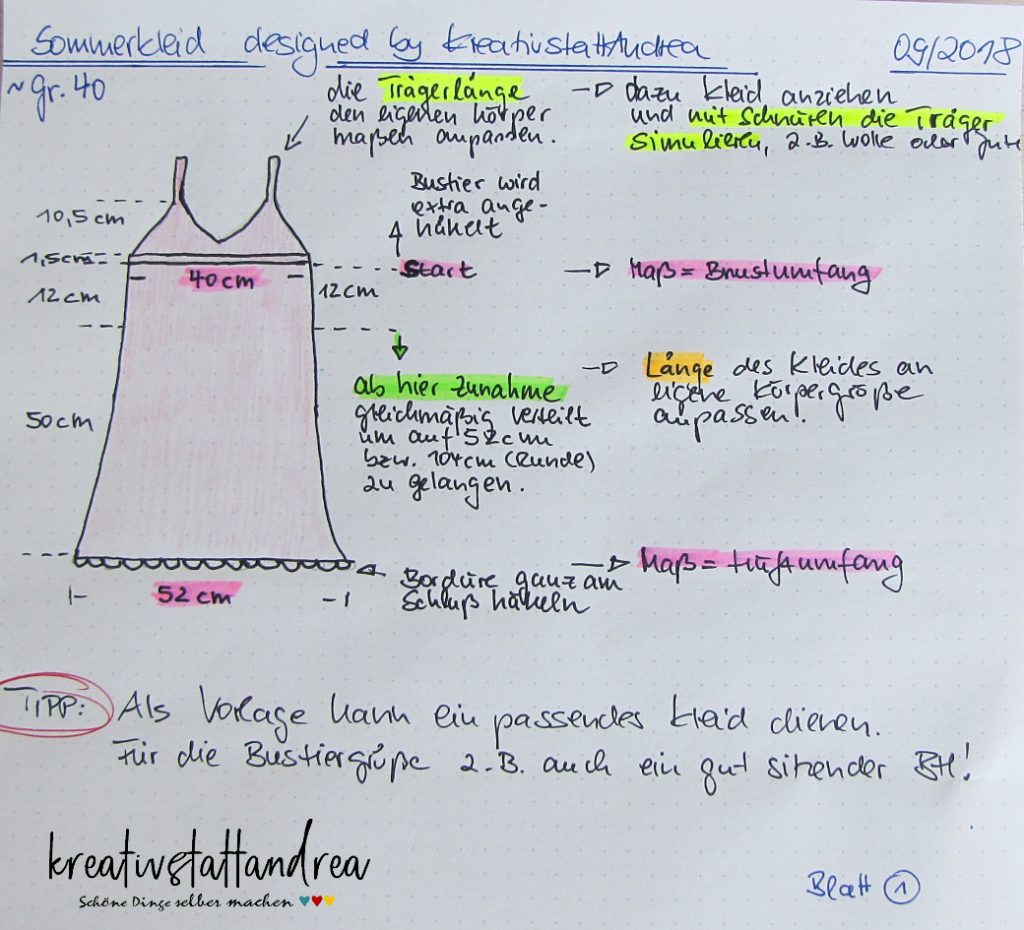 Sommerkleid designed by kreativstattAndrea 09/2018
~ Gr. 40
die Trägerlänge
den eigenen Körper
maßen anpassen.
→ dazu Kleid anziehen
und mit Schnüren die Träger
simulieren, z.B. Wolle oder
Bustier wird
extra ange-
häkelt
10,5 cm
1,5cm
40cm
Start → Maß = Brustumfang
12cm
12cm
ab hier Zunahme
gleichmäßig verteilt
um auf 52cm
bzw. 104cm (Runde)
zu gelangen.
→ Länge des Kleides an
eigene Körpergröße
anpassen!
50cm
52 cm
Bordüre ganz am
Schluß häkeln
→ Maß = Hüftumfang
TIPP: Als Vorlage kann ein passendes Kleid dienen.
Für die Bustiergröße z.B. auch ein gut sitzender BH!
kreativstattandrea
Schöne Dinge selber machen
Blatt 1